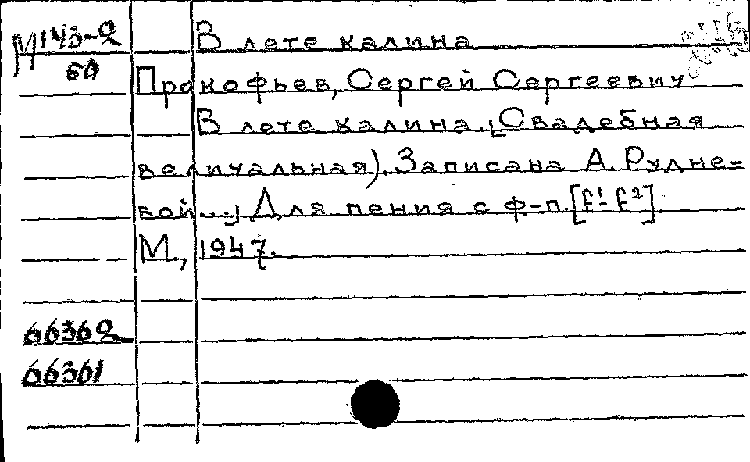 М 143-2
50
В лете калина
Прокофьев, Сергей Сергеевич
В лете калина. [Свадебная
величальная). Записана А. Рудне-
вой...] Для пения с ф-п.[f¹-f²].
М., 1947.
66362
66361